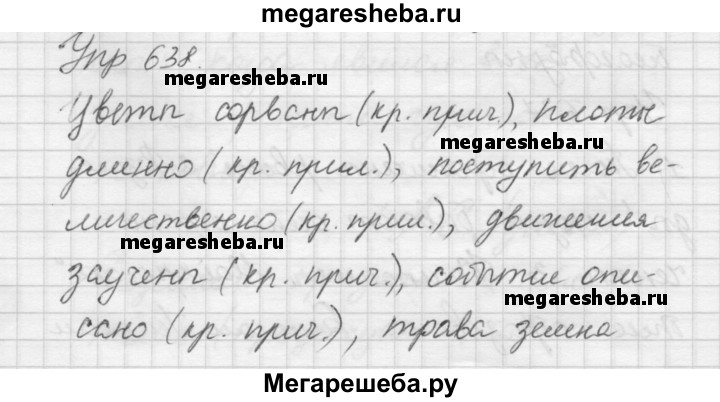 megaresheba.ru
Упр 638.
megaresheba.ru
Цветы сорваны (кр. прич.), плоты
megaresheba.ru
длинно (кр. прил.), поступить ве-
личественно (кр. прил.), движения
megaresheba.ru
заучены (кр. прич.), событие опи-
megaresheba.ru
сано (кр. прич.), трава зелена
Мегарешеба.ру